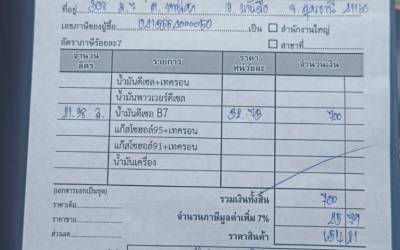 ที่อยู่ 303 ม.7 ต. อ. บ้านดุง จ. อุดรธานี 41160
เลขภาษีของผู้ซื้อ เป็น สำนักงานใหญ่
อัตราภาษีร้อยละ7 สาขาที่
จำนวนลิตร รายการ ราคาหน่วยละ จำนวนเงิน
น้ำมันดีเซล+เทครอน
น้ำมันพาวเวอร์ดีเซล
21.38 ล. น้ำมันดีเซล B7 32 73 700
แก๊สโซฮอล์95+เทครอน
แก๊สโซฮอล์91+เทครอน
น้ำมันเครื่อง
(เอกสารออกเป็นชุด) รวมเงินทั้งสิ้น 700
ราคาเต็ม จำนวนภาษีมูลค่าเพิ่ม 7% 45 79
ราคาขาย ราคาสินค้า 654 21
ส่วนลด